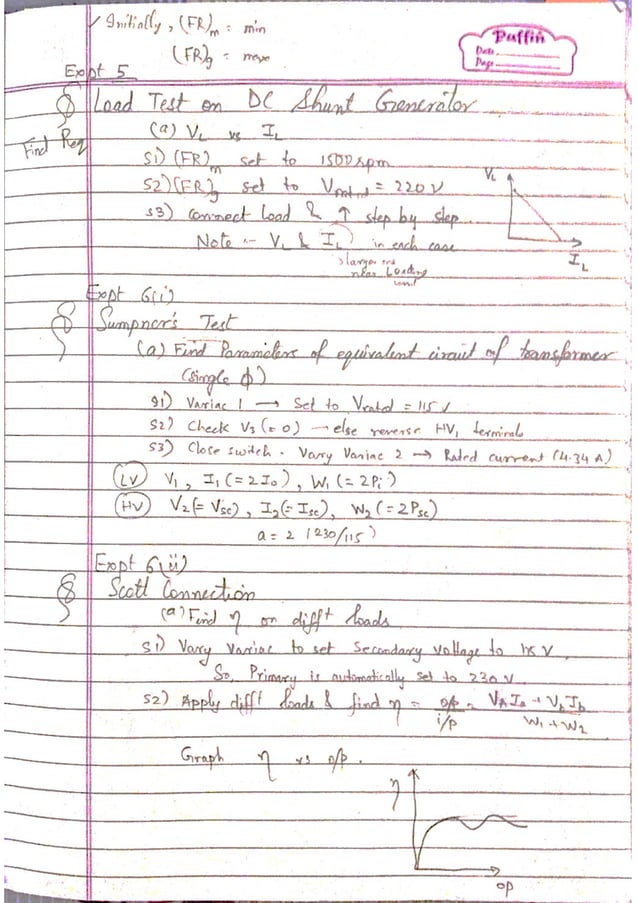 Initially, (FR)m = min
(FR)g = max
Puffin
Date
Page
Expt 5
Load Test on DC Shunt Generator
Find Req
(a) VL vs IL
S1) (FR)m set to 1500 rpm
S2) (FR)g set to Vrated = 220 V
S3) connect Load & ↑ step by step
Note :- VL & IL in each case
near Loading
VL
IL
Expt 6(i)
Sumpner's Test
(a) Find Parameters of equivalent circuit of transformer
(single ϕ)
S1) Variac 1 → Set to Vrated = 115 V
S2) Check V3 (= 0) – else reverse HV, terminals
S3) Close switch. Vary Variac 2 → Rated current (4.34 A)
LV V1, I1 (= 2I0), W1 (= 2Pi)
HV V2 (= Vsc), I2 (= Isc), W2 (= 2Psc)
a = 2 (230/115)
Expt 6(ii)
Scott Connection
(a) Find η on difft loads
S1) Vary Variac to set Secondary voltage to 115 V.
So, Primary is automatically set to 230 V.
S2) Apply difft loads & find η = o/p / i/p = VaIa + VbIb / W1 + W2
Graph η vs o/p.
η
op